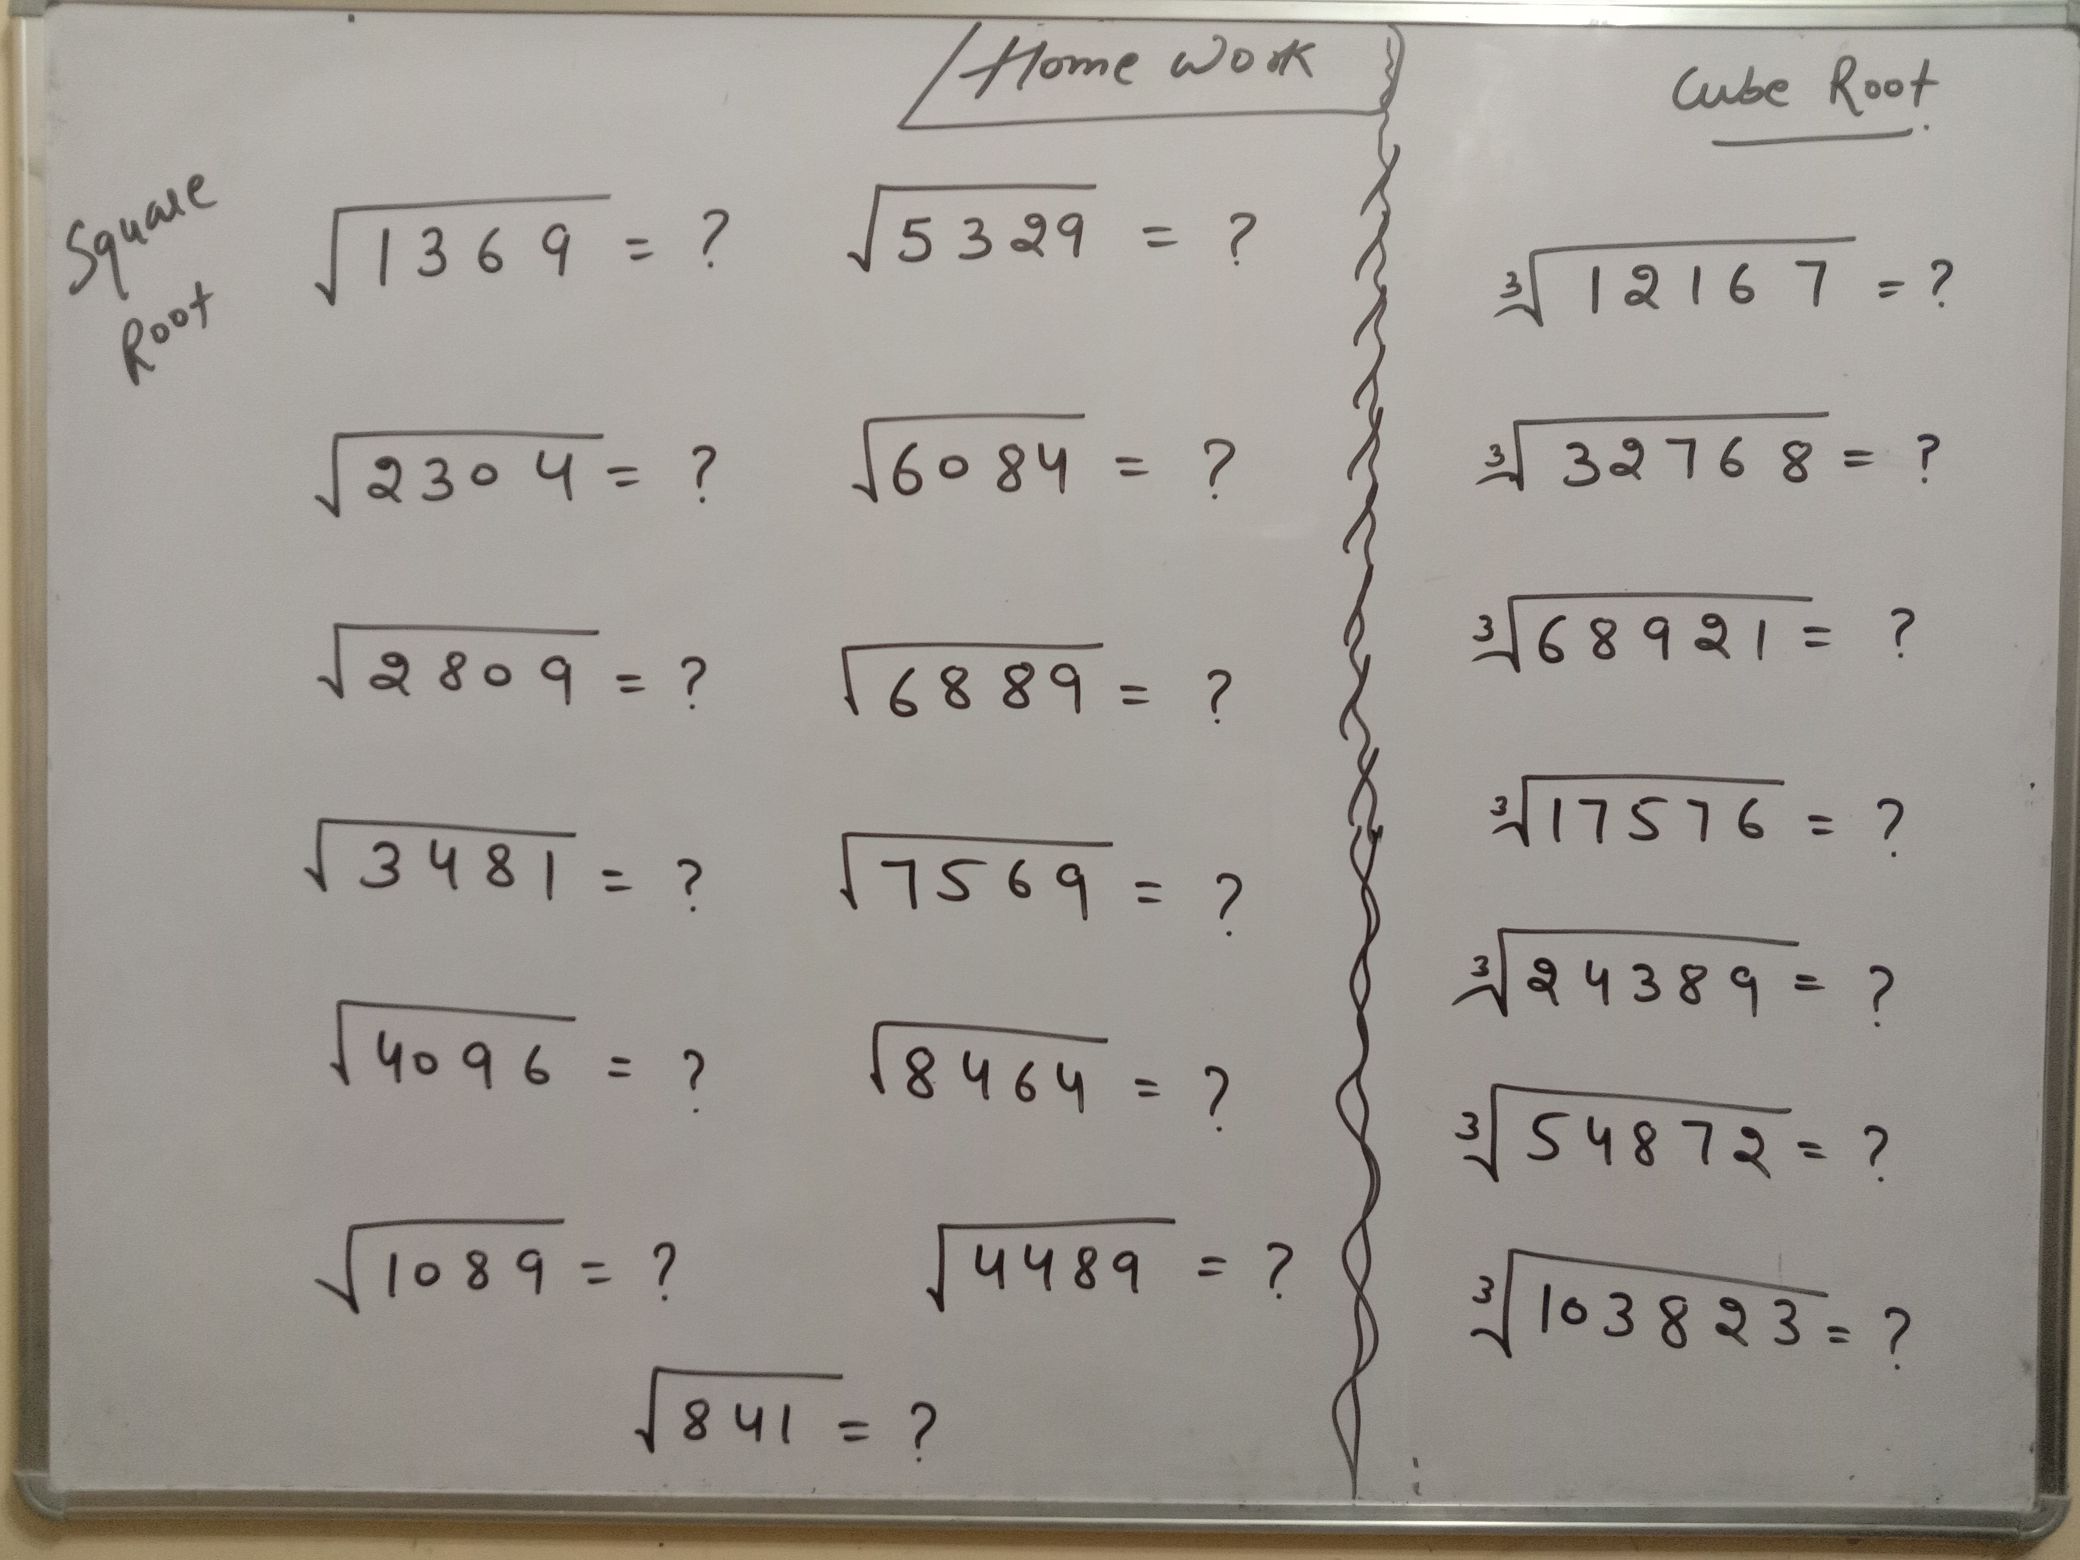 Home Work
Square
Root
√1369 = ?
√5329 = ?
√2304 = ?
√6084 = ?
√2809 = ?
√6889 = ?
√3481 = ?
√7569 = ?
√4096 = ?
√8464 = ?
√1089 = ?
√4489 = ?
√841 = ?
Cube Root
³√12167 = ?
³√32768 = ?
³√68921 = ?
³√17576 = ?
³√24389 = ?
³√54872 = ?
³√103823 = ?